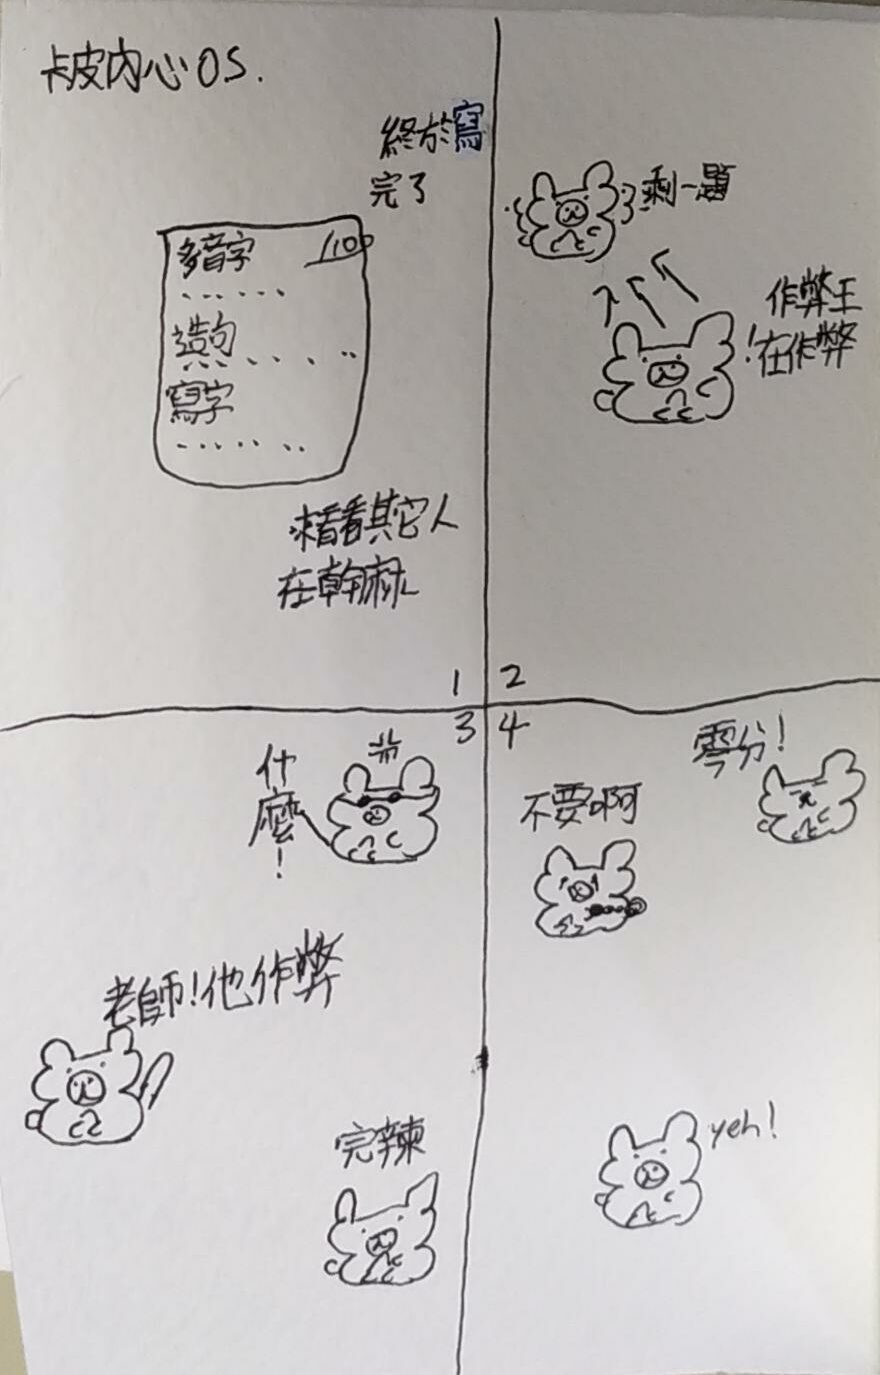 卡皮內心OS.
終於寫
完了
多音字 /100
......
造句
.......
寫字
.......
來看看其它人
在幹麻
1
2
剩一題
作弊王
!在作弊
3
什麼!
老師!他作弊
完辣
4
零分!
不要啊
yeh!